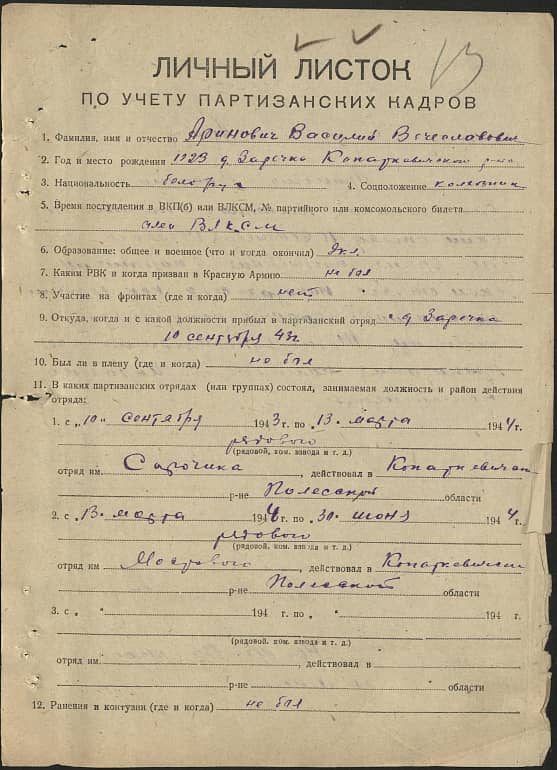 13
ЛИЧНЫЙ ЛИСТОК
ПО УЧЕТУ ПАРТИЗАНСКИХ КАДРОВ
1. Фамилия, имя и отчество Аринович Василий Вечеславович
2. Год и место рождения 1923 д. Заречка Копаткевичского р-на
3. Национальность белорус 4. Соцположение колхозник
5. Время поступления в ВКП(б) или ВЛКСМ, № партийного или комсомольского билета
член ВЛКСМ
6. Образование: общее и военное (что и когда окончил)
7. Каким РВК и когда призван в Красную Армию не был
8. Участие на фронтах (где и когда) нет
9. Откуда, когда и с какой должности прибыл в партизанский отряд с д Заречка
10 сентября 43г.
10. Был ли в плену (где и когда) не был
11. В каких партизанских отрядах (или группах) состоял, занимаемая должность и район действия
отряда:
1. с „10" сентября 1943г. по „13" марта 1944г.
рядового
(рядовой, ком. взвода и т. д.)
отряд им. , действовал в Копаткевичском
р-не Полесской области
2. с „13" марта 1944г. по „30" июня 1944г.
рядового
(рядовой, ком. взвода и т. д.)
отряд им , действовал в Копаткевичском
р-не Полесской области
3. с „ " 194 г. по „ " 194 г.
(рядовой, ком. взвода и т. д.)
отряд им. , действовал в
р-не области
12. Ранения и контузии (где и когда) не был